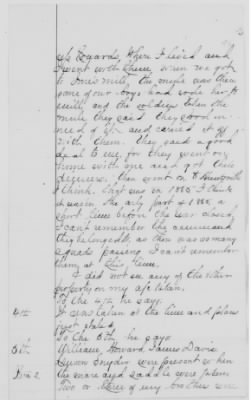 where I lived and
I went with them when we got
to mill, the mule was then
gone our boys had rode her to
mill, and the soldiers taken the
mule, they said they stood in
need of it and carried it off
with them. They said a good
deal to me, for they went on
home with me and got their
dinners. then went on to Kenworth
I think. that was in 1865 I think
it was in the early part of 1865 a
short time before the war closed,
I can't remember the command
they belonged to, as there was so many
squads passing I can't remember
them at this time.
I did not see any of the other
property on my as taken.
To the 4th he says.
4th It was taken at the time and place
just stated
To the 5th he says
5th William Howard James Davis
Snyder were present when
the mare and saddle were taken
Two or three of my brothers were